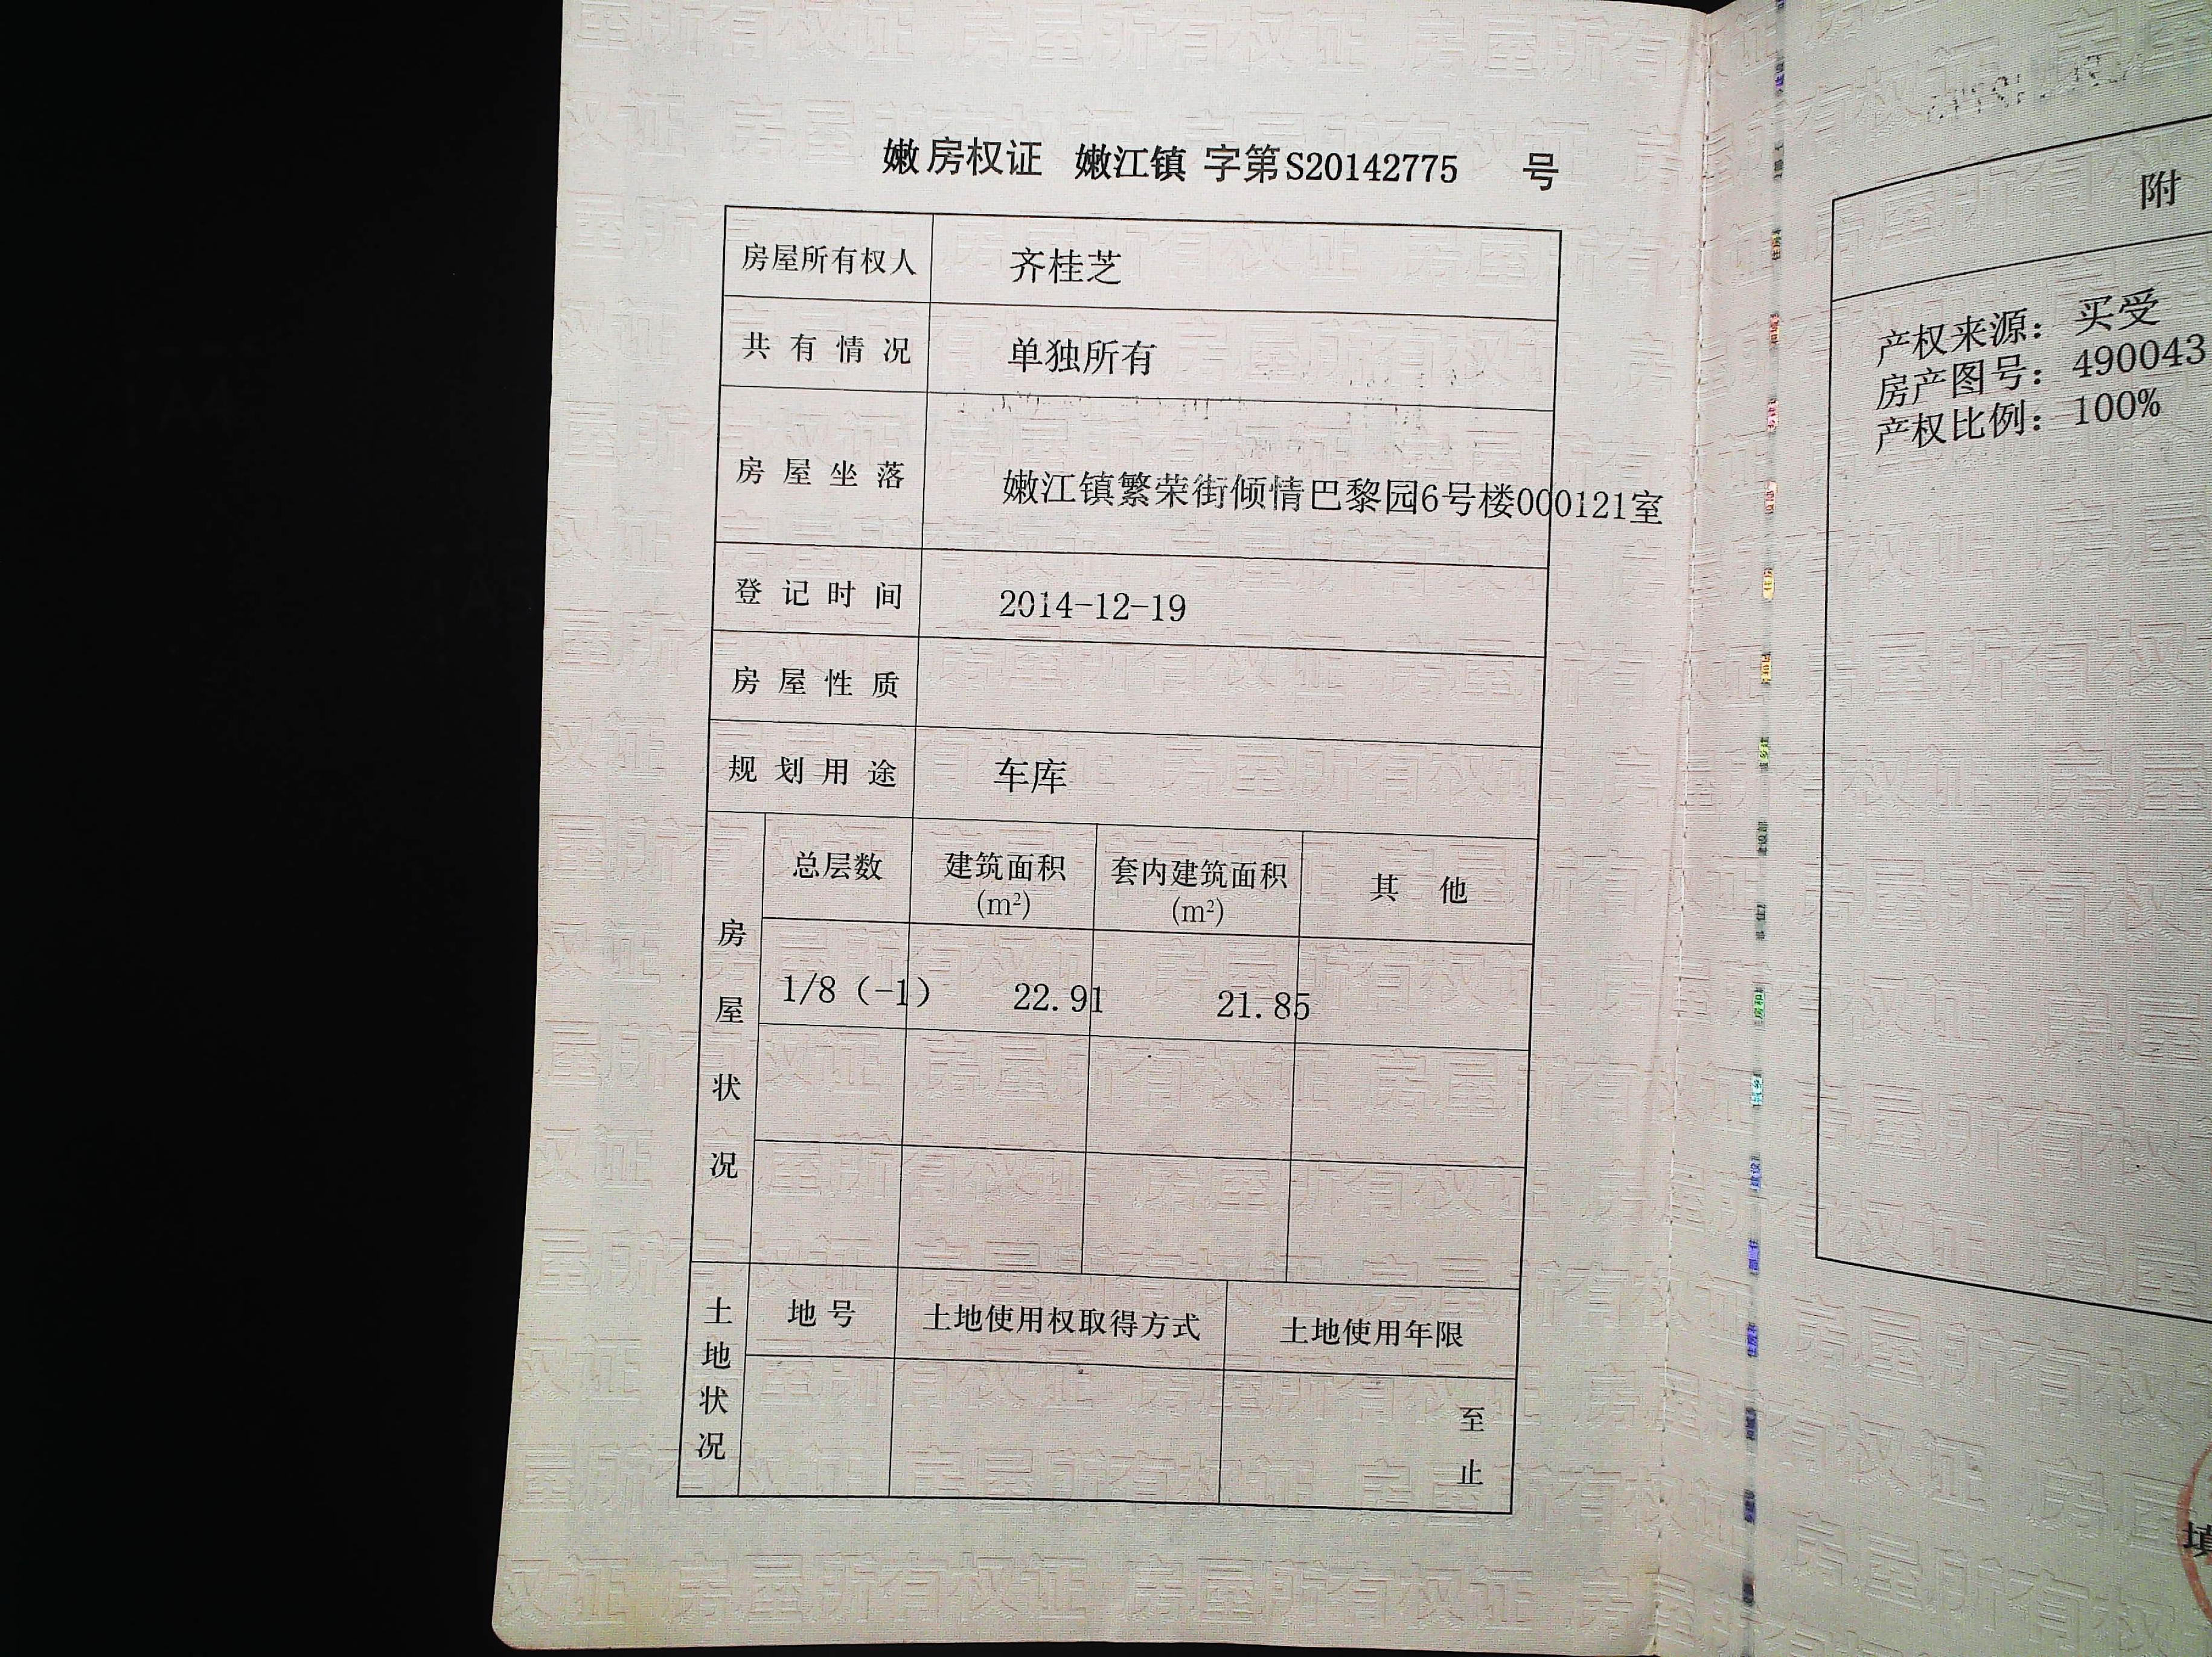 嫩房权证 嫩江镇 字第S20142775 号
房屋所有权人 齐桂芝
共有情况 单独所有
房屋坐落 嫩江镇繁荣街倾情巴黎园6号楼000121室
登记时间 2014-12-19
房屋性质
规划用途 车库
房屋状况
总层数 建筑面积(m²) 套内建筑面积(m²) 其他
1/8（-1） 22.91 21.85
土地状况
地号 土地使用权取得方式 土地使用年限
至
止
附
产权来源：买受
房产图号：490043
产权比例：100%
填